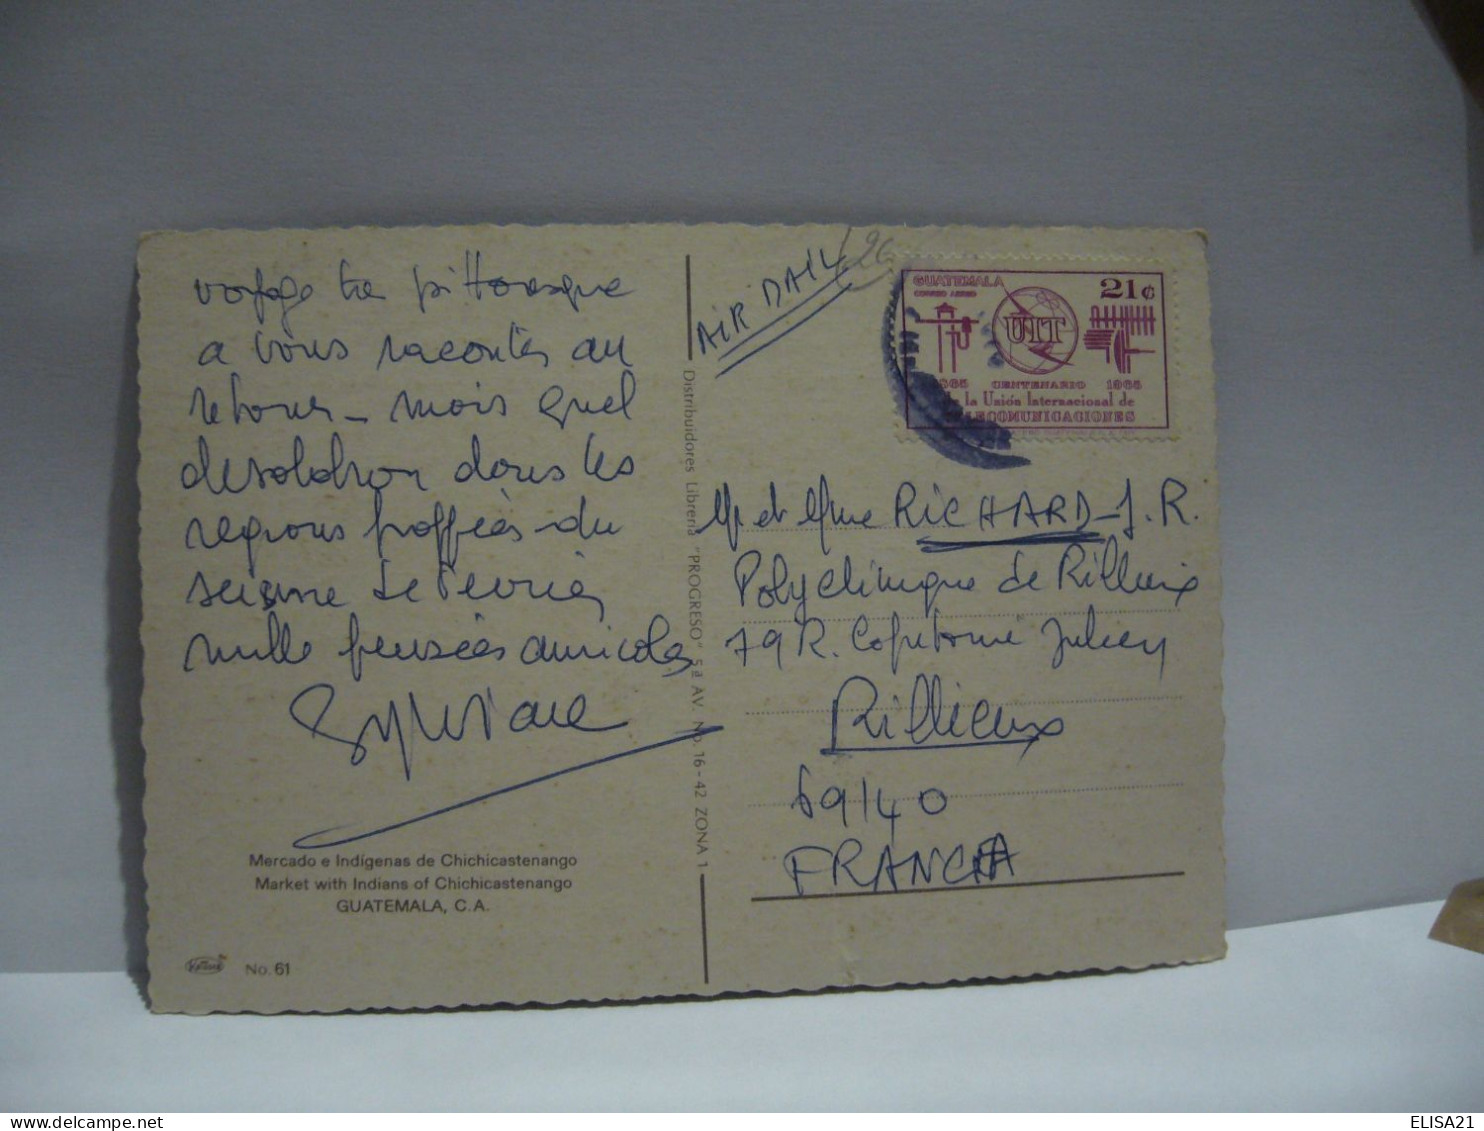 voyage tres pittoresque
a vous raconter au
retour - mais quel
desolation dans les
regions frappées du
seisme de Fevrier
mille pensées amicales
Sylviane
Mercado e Indígenas de Chichicastenango
Market with Indians of Chichicastenango
GUATEMALA, C.A.
No. 61
Distribuidores Librería "PROGRESO" 5ª AV. No. 16-42 ZONA 1
AIR MAIL
GUATEMALA 21¢
CORREO AEREO
UIT
1865 CENTENARIO 1965
de la Unión Internacional de
TELECOMUNICACIONES
Mr et Mme RICHARD J.R.
Polyclinique de Rillieux
79 R. Capitaine Julien
Rillieux
69140
FRANCIA
ELISA21